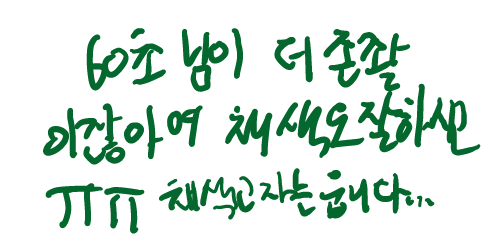 60초 님이 더 존좔
이잖아여 채색도 잘하시면
ㅠㅠ 채색고자는 웁니다...